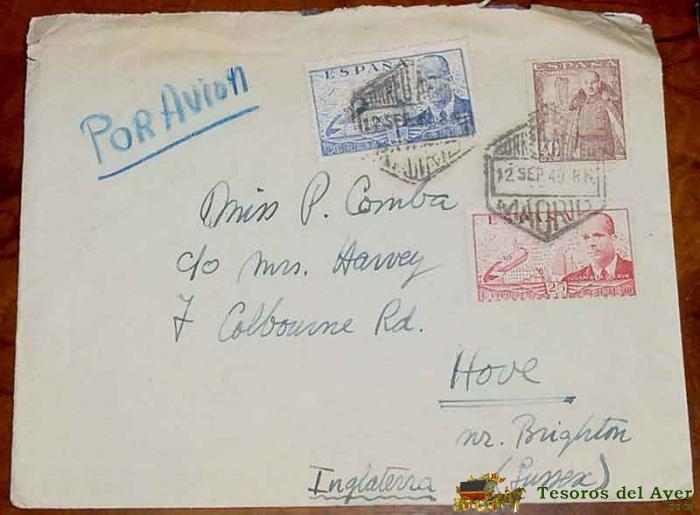 POR AVION
ESPAÑA
12 SEP 49
ESPAÑA
CORREO
12 SEP 49 8 N
MADRID
ESPAÑA
Miss P. Comba
c/o Mrs. Harvey
7 Colbourne Rd.
Hove
nr. Brighton
(Sussex)
Inglaterra
Tesoros del Ayer
.com